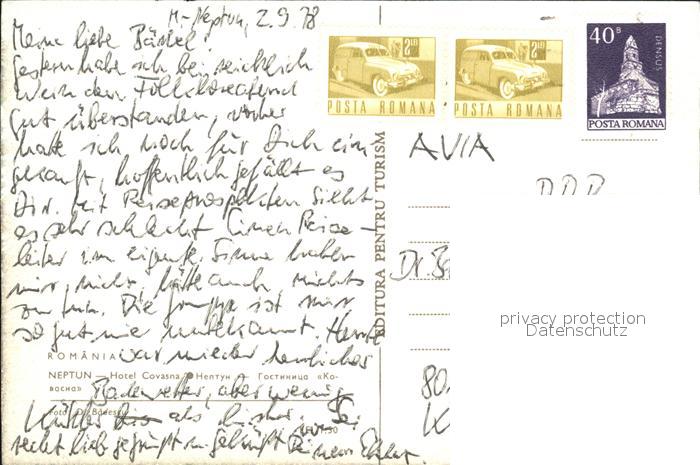 M-Neptun, 2.9.78
Meine liebe Bärbel!
gestern habe ich bei reichlich
Wein den Folkloreabend
gut überstanden, vorher
hatte ich noch für Dich ein
gekauft, hoffentlich gefällt es
Dir. Mit Reiseprospekten sieht
es sehr schlecht. Einen Reise-
leiter im eigentl. Sinne haben
wir nicht, hätte auch nichts
zu tun. Die Gruppe ist mir
so gut wie unbekannt. Heute
war wieder herrliches
Badewetter, aber wenig
kühler als bisher. Sei
recht lieb gegrüßt u. geküßt von
Deinem
ROMÂNIA
NEPTUN — Hotel Covasna • Нептун — Гостиница «Ко-
васна»
Foto: Dr. Bădescu
EDITURA PENTRU TURISM
2 LEI
POSTA ROMANA
2 LEI
POSTA ROMANA
40 B
DENSUS
POSTA ROMANA
AVIA
DDR
Dr. B
80
privacy protection
Datenschutz